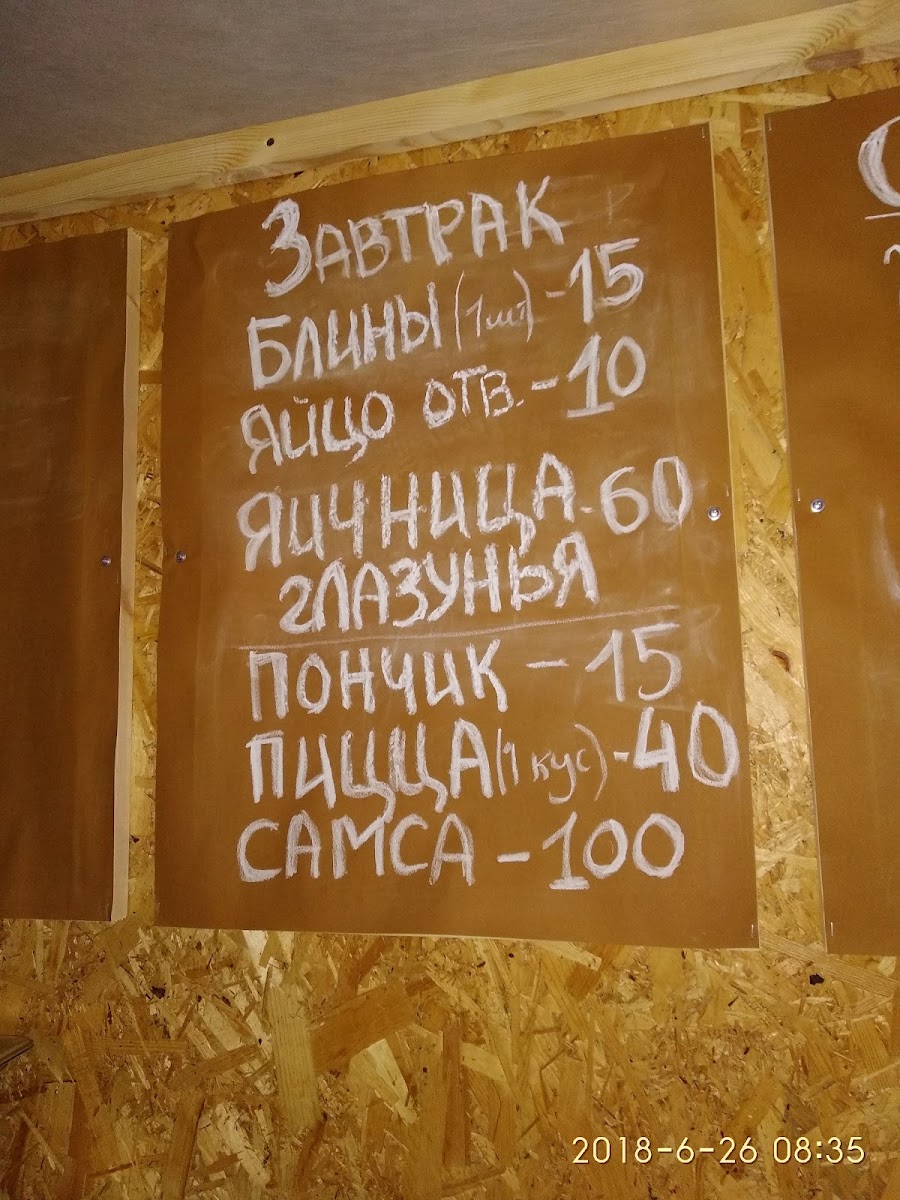 Завтрак
Блины (1шт) - 15
Яйцо отв. - 10
Яичница - 60
глазунья
Пончик - 15
Пицца (1 кус) - 40
Самса - 100
2018-6-26 08:35